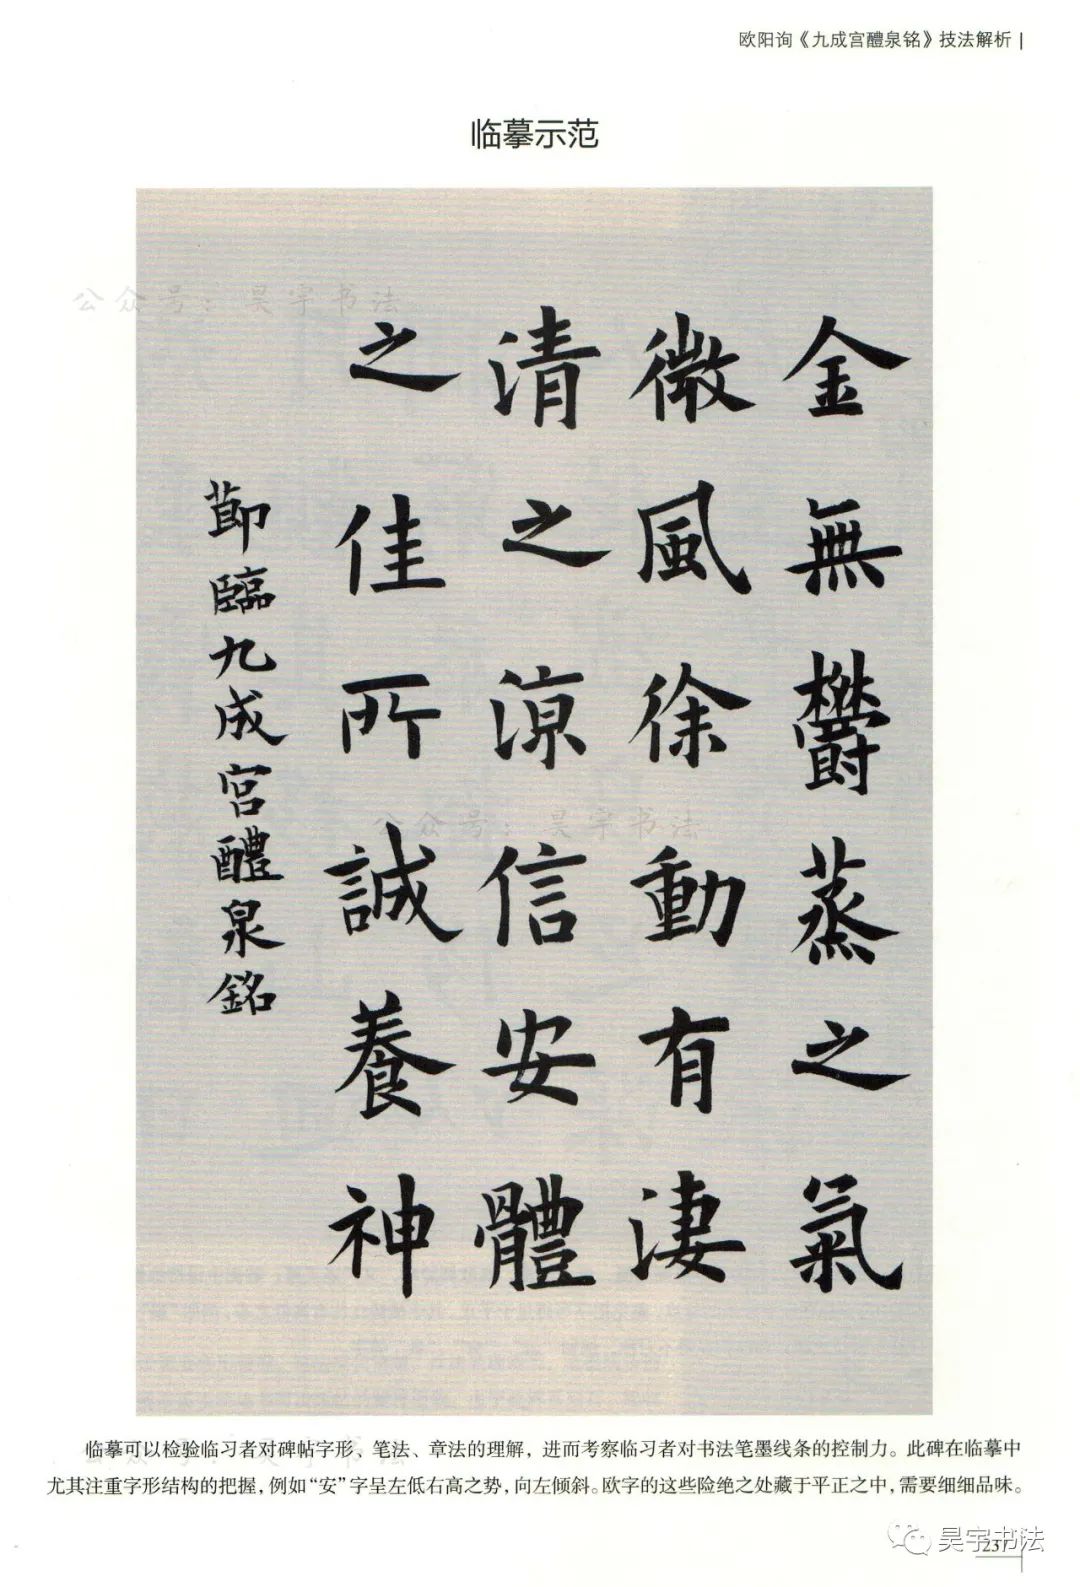 欧阳询《九成宫醴泉铭》技法解析
临摹示范
公众号：昊宇书法
金無鬱蒸之氣
微風徐動有淒
清之涼信安體
之佳所誠養神
節臨九成宮醴泉銘
公众号：昊宇书法
临摹可以检验临习者对碑帖字形、笔法、章法的理解，进而考察临习者对书法笔墨线条的控制力。此碑在临摹中
尤其注重字形结构的把握，例如“安”字呈左低右高之势，向左倾斜。欧字的这些险绝之处藏于平正之中，需要细细品味。
公众号：昊宇书法
昊宇书法
237